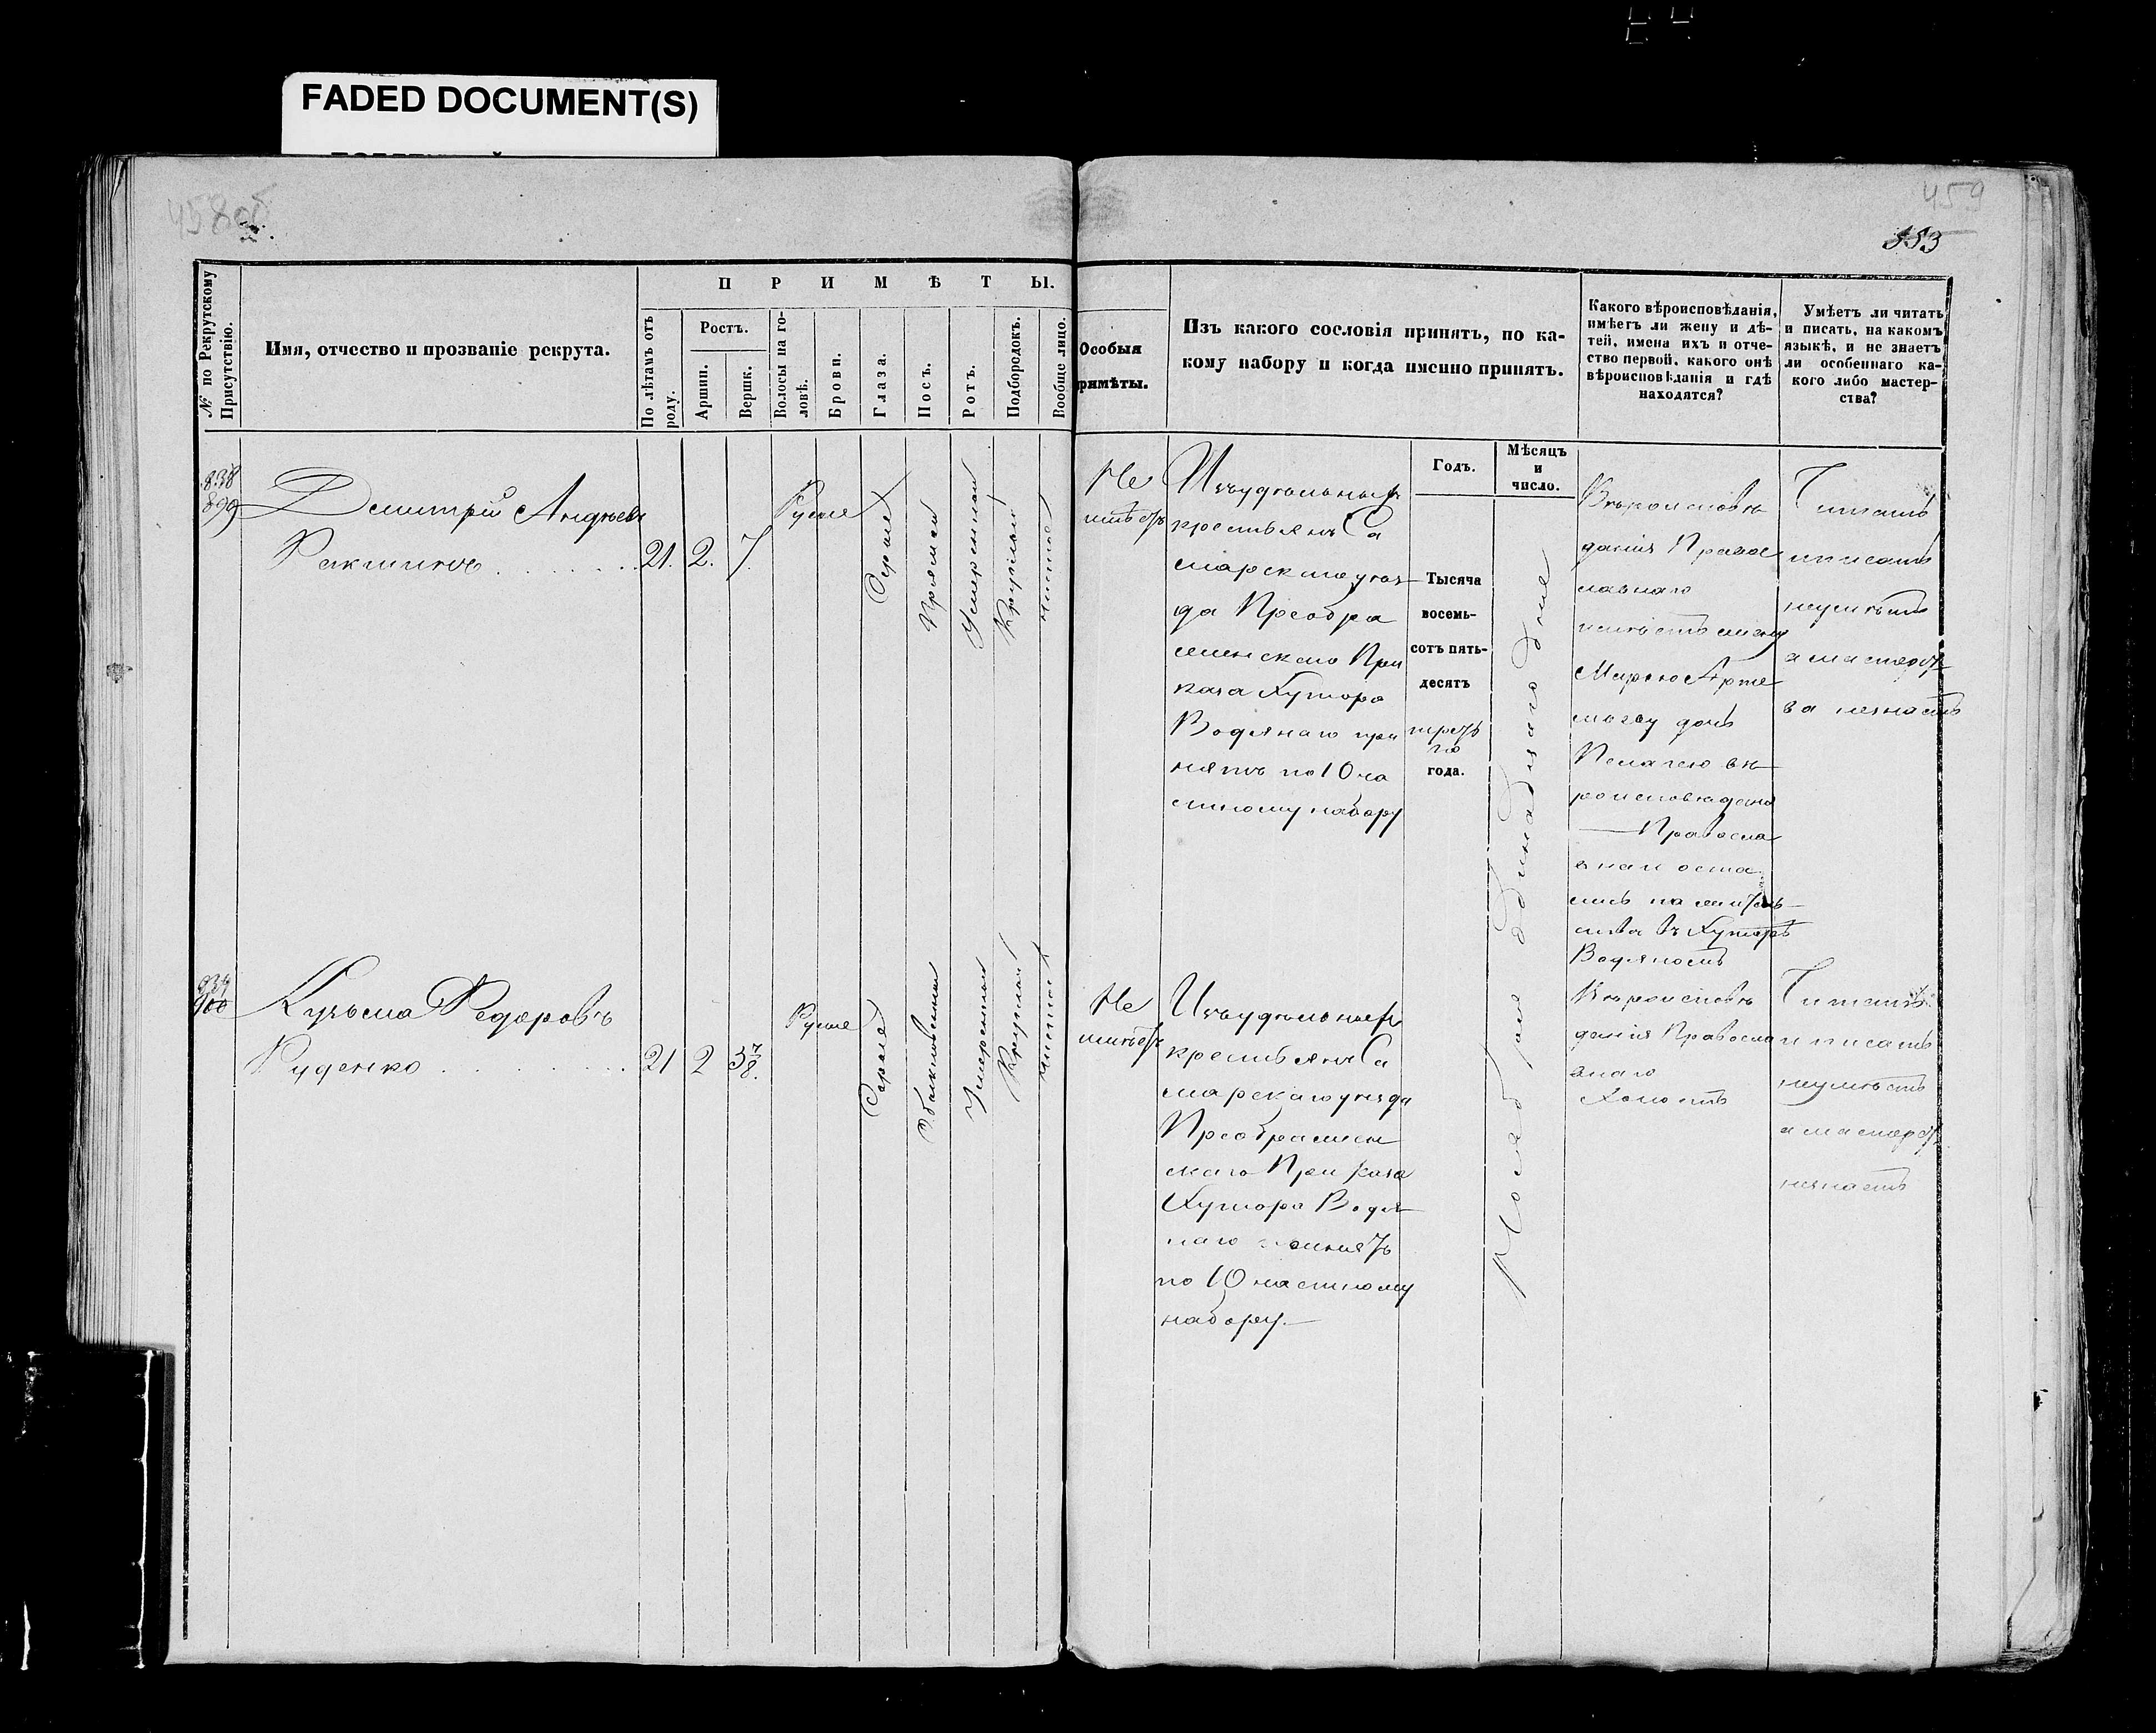 FADED DOCUMENT(S)
458об.
459
553
№ по Рекрутскому Присутствію.
Имя, отчество и прозваніе рекрута.
ПРИМѢТЫ.
По лѣтамъ отъ роду.
Ростъ.
Аршин.
Вершк.
Волосы на головѣ.
Брови.
Глаза.
Носъ.
Ротъ.
Подбородокъ.
Вообще лицо.
Особыя
римѣты.
Изъ какого сословія принятъ, по ка-
кому набору и когда именно принятъ.
Годъ.
Мѣсяцъ
и
число.
Какого вѣроисповѣданія,
имѣетъ ли жену и дѣ-
тей, имена ихъ и отче-
ство первой, какого онѣ
вѣроисповѣданія и гдѣ
находятся?
Умѣетъ ли читать
и писать, на какомъ
языкѣ, и не знаетъ
ли особеннаго ка-
кого либо мастер-
ства?
838
899
Дмитрій Андреевъ
21. 2. 7.
Русые
Серые
Прямой
Умеренный
Круглый
чистое
Не
имѣетъ
Изъ удельныхъ
крестьянъ Са
марскаго уез
да Преобра
женскаго При
каза Хутора
Водянаго при
нятъ по 10 ча
стному набору
Тысяча
восемь-
сотъ пять-
десятъ
третьяго
года.
Ноября одинадцатаго дня
Вѣроисповѣ
данія Право
славнаго
имѣетъ жену
Марью Арте
мову дочь
Пелагею вѣ
роисповѣданія
Правосла
внаи оста
лись на житель
ства въ Хуторѣ
Водяномъ
Читать
и писать
неумѣетъ
а мастерст
ва незнаетъ
839
900
Кузьма Федоровъ
Руденко
21 2 3 7/8.
Русые
Серые
Обыкновенный
Умеренный
Круглый
чистое
Не
имѣетъ
Изъ удельныхъ
крестьянъ Са
марскаго уезда
Преображен
скаго Приказа
Хутора Водя
наго принятъ
по 10 частному
набору.
Вѣроисповѣ
данія Правосла
внаго
Холостъ
Читать
и писать
неумѣетъ
а мастерст
незнаетъ